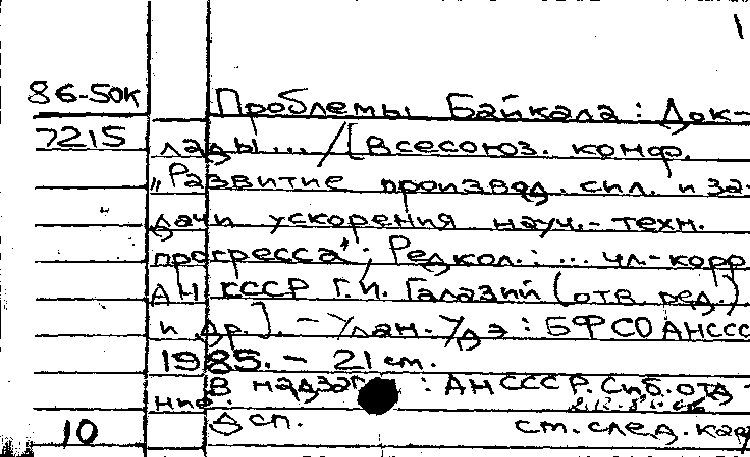 1
86-50К Проблемы Байкала : Док-
7215 лады ... / [Всесоюз. конф.
„Развитие производ. сил. и за-
дачи ускорения науч.- техн.
прогресса"; Редкол.: ... чл.-корр
АН СССР Г.И. Галазий (отв. ред.)
и др.]. – Улан-Удэ : БФСО АНССС
1985. – 21 см.
В надзаг : АНСССР. Сиб. отд-
ние.
10 Дсп. см. след. кар